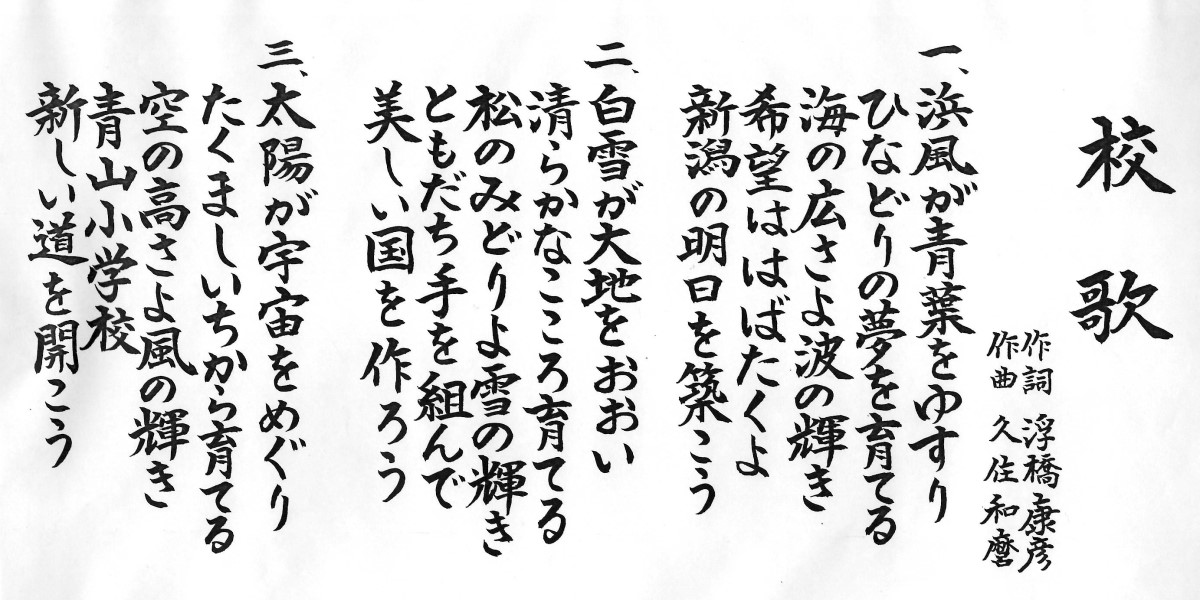 校歌
作詞 浮橋康彦
作曲 久住和麿
一、浜風が青葉をゆすり
ひなどりの夢を育てる
海の広さよ波の輝き
希望ははばたくよ
新潟の明日を築こう
二、白雪が大地をおおい
清らかなこころ育てる
松のみどりよ雪の輝き
ともだち手を組んで
美しい国を作ろう
三、太陽が宇宙をめぐり
たくましいちから育てる
空の高さよ風の輝き
青山小学校
新しい道を開こう